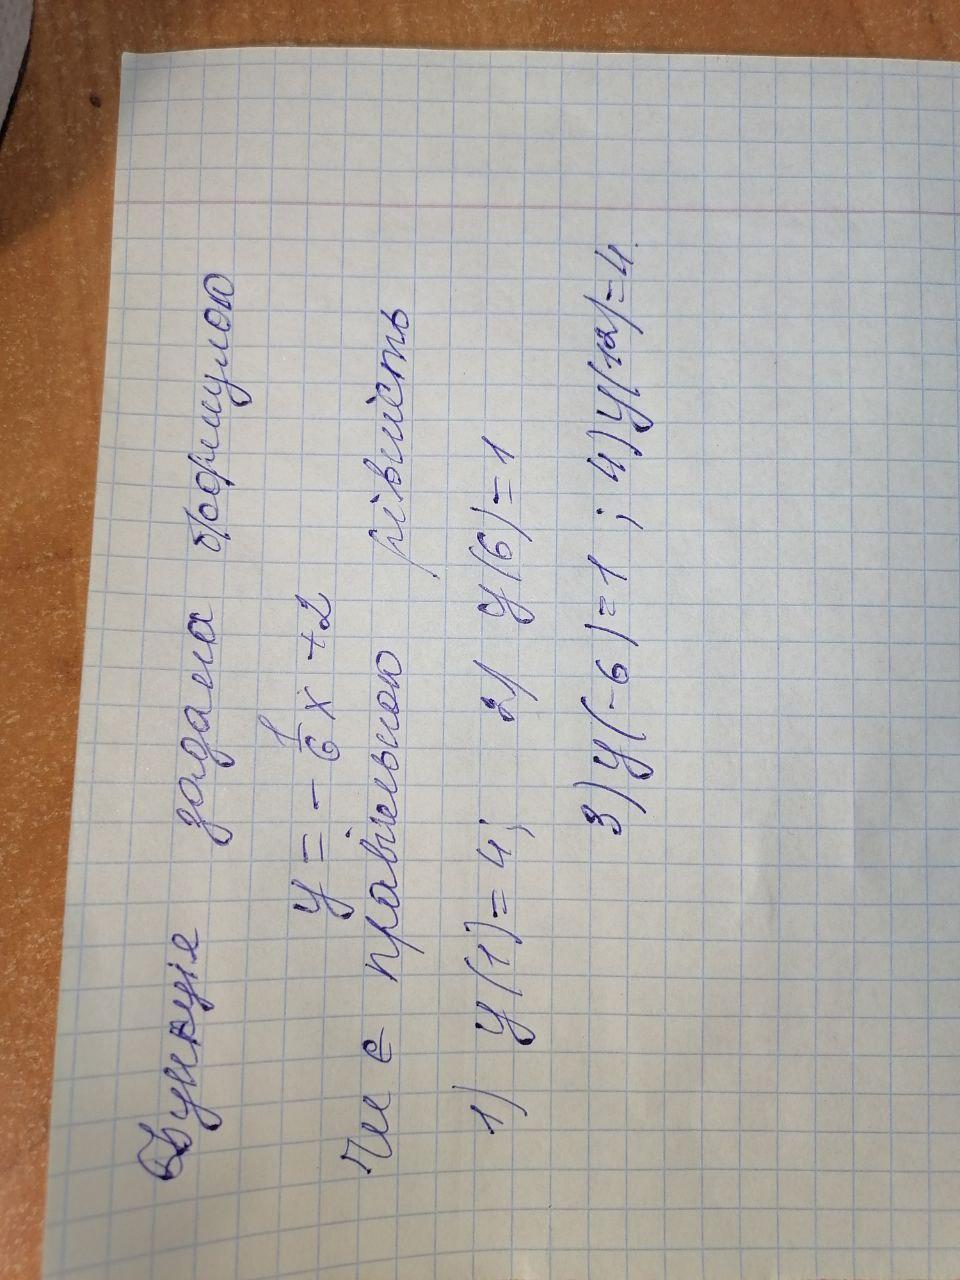 Функція задана формулою
y = - 1/6 x + 2
Чи є правільною рівність
1) y(1) = 4; 2) y(6) = 1
3) y(-6) = 1 ; 4) y(12) = 4.